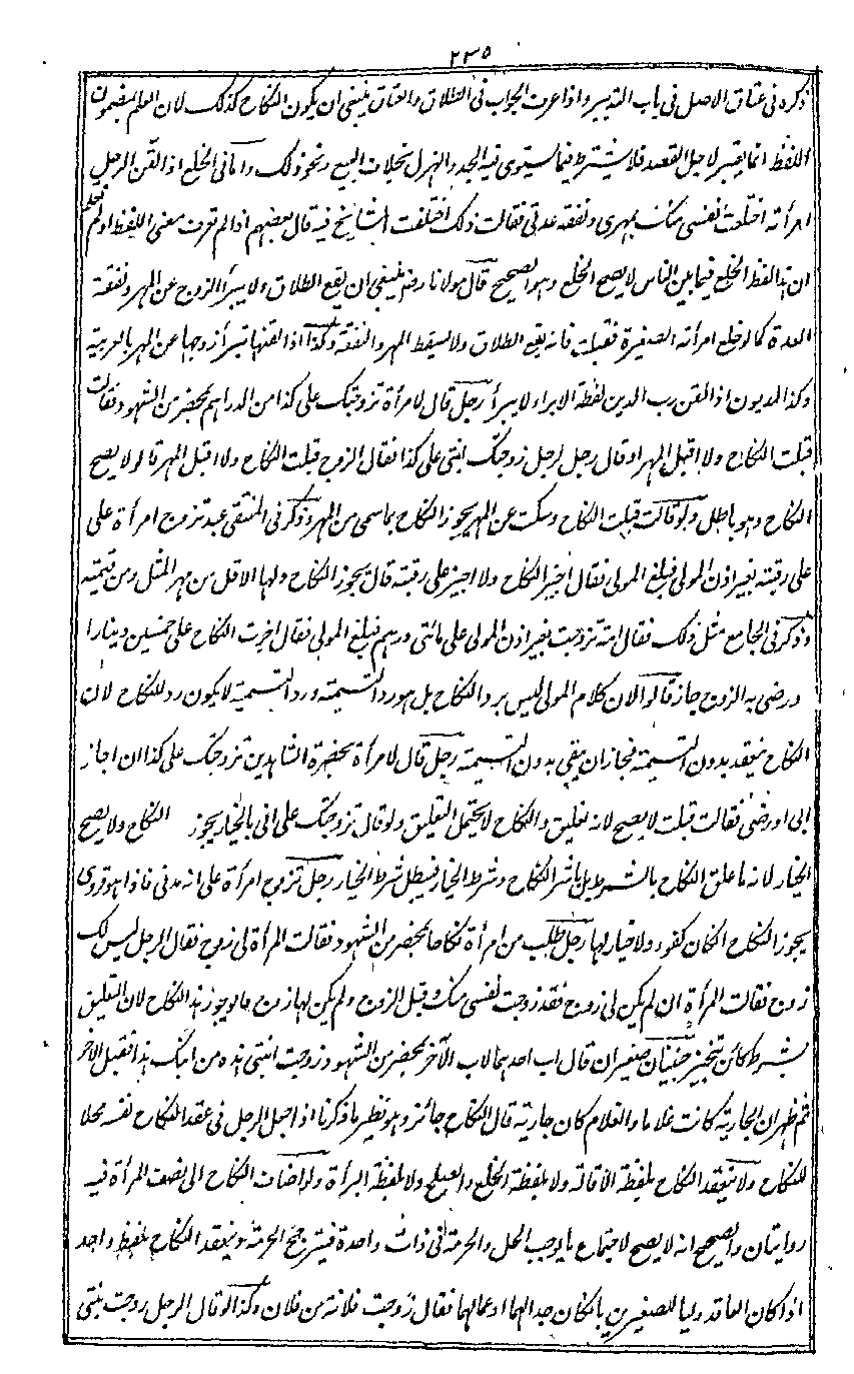 ٢٣٥
ذكره فى عتاق الاصل فى باب التدبير واذا عرف الجواب فى الطلاق والعتاق ينبغى ان يكون النكاح كذلك لان العلم بمضمون
اللفظ انما يعتبر لاجل القصد فلا يشترط فيما يستوى فيه الجد والهزل بخلاف البيع ونحو ذلك واما فى الخلع اذا لقن الرجل
امرأته اختلعت نفسى منك بمهرى ونفقة عدتى فقالت ذلك اختلفت المشايخ فيه قال بعضهم اذا لم تعرف معنى اللفظ او لم تعلم
ان هذا لفظ الخلع فيما بين الناس لا يصح الخلع وهو الصحيح قال مولانا رضه ينبغى ان يقع الطلاق ولا يبرأ الزوج عن المهر ونفقة
العدة كما لو خلع امرأته الصغيرة فقبلت فانه يقع الطلاق ولا يسقط المهر والنفقة وكذا اذا لقنها تبرأ زوجها عن المهر بالعربية
وكذا المديون اذا لقن رب الدين لفظة الابراء لا يبرأ رجل قال لامرأة تزوجتك على كذا من الدراهم بمحضر من الشهود فقالت
قبلت النكاح ولا اقبل المهر او قال رجل لرجل زوجتك ابنتى على كذا فقال الزوج قبلت النكاح ولا اقبل المهر قالوا لا يصح
النكاح وهو باطل ولو قالت قبلت النكاح وسكت عن المهر يجوز النكاح بما سمى من المهر وذكر فى المنتقى عبد تزوج امرأة على
على رقبته بغير اذن المولى فبلغ المولى فقال اجيز النكاح ولا اجيز على رقبته قال يجوز النكاح ولها الاقل من مهر المثل ومن قيمته
وذكر فى الجامع مثل ذلك فقال امة تزوجت بغير اذن المولى على مائتى درهم فبلغ المولى فقال اجزت النكاح على خمسين دينارا
ورضى به الزوج جاز قالوا لان كلام المولى ليس برد النكاح بل هو رد التسمية ورد التسمية لا يكون رد للنكاح لان
النكاح ينعقد بدون التسمية فجاز ان يبقى بدون التسمية رجل قال لامرأة بحضرة الشاهدين تزوجتك على كذا ان اجاز
ابى او رضى فقالت قبلت لا يصح لانه تعليق والنكاح لا يحتمل التعليق ولو قال تزوجتك على انى بالخيار يجوز النكاح ولا يصح
الخيار لانه ما علق النكاح بالشرط بل باشر النكاح وشرط الخيار فيبطل شرط الخيار رجل تزوج امرأة على انه مدنى فاذا هو قروى
يجوز النكاح ان كان كفوء ولا خيار لها رجل طلب من امرأة نكاحا بمحضر من الشهود فقالت المرأة لى زوج فقال الرجل ليس لك
زوج فقالت المرأة ان لم يكن لى زوج فقد زوجت نفسى منك وقبل الزوج ولم يكن لها زوج قالوا يجوز هذا النكاح لان التعليق
بشرط كائن تنجيز صغيران قال اب احدهما لاب الآخر بمحضر من الشهود زوجت ابنتى هذه من ابنك هذا فقبل الآخر
ثم ظهر ان الجارية كانت غلاما والغلام كان جارية قال النكاح جائز وهو نظير ما ذكرنا اذا جعل الرجل فى عقد النكاح نفسه محلا
للنكاح ولا ينعقد النكاح بلفظة الاقالة ولا بلفظة الخلع والصلح ولا بلفظة البرأة ولو اضاف النكاح الى نصف المرأة فيه
روايتان والصحيح انه لا يصح لاجتماع ما يوجب الحل والحرمة فى ذات واحدة فيترجح الحرمة وينعقد النكاح بلفظ واحد
اذا كان العاقد وليا للصغيرين بان كان جدا لهما او عما لهما فقال زوجت فلانة من فلان وكذا لو قال الرجل زوجت بنتى